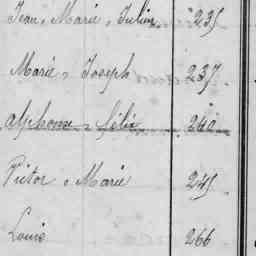 Jean, Marie, Julien 235
Marie, Joseph 237
Alphonse, Félix 240
Victor, Marie 245
Louis 266